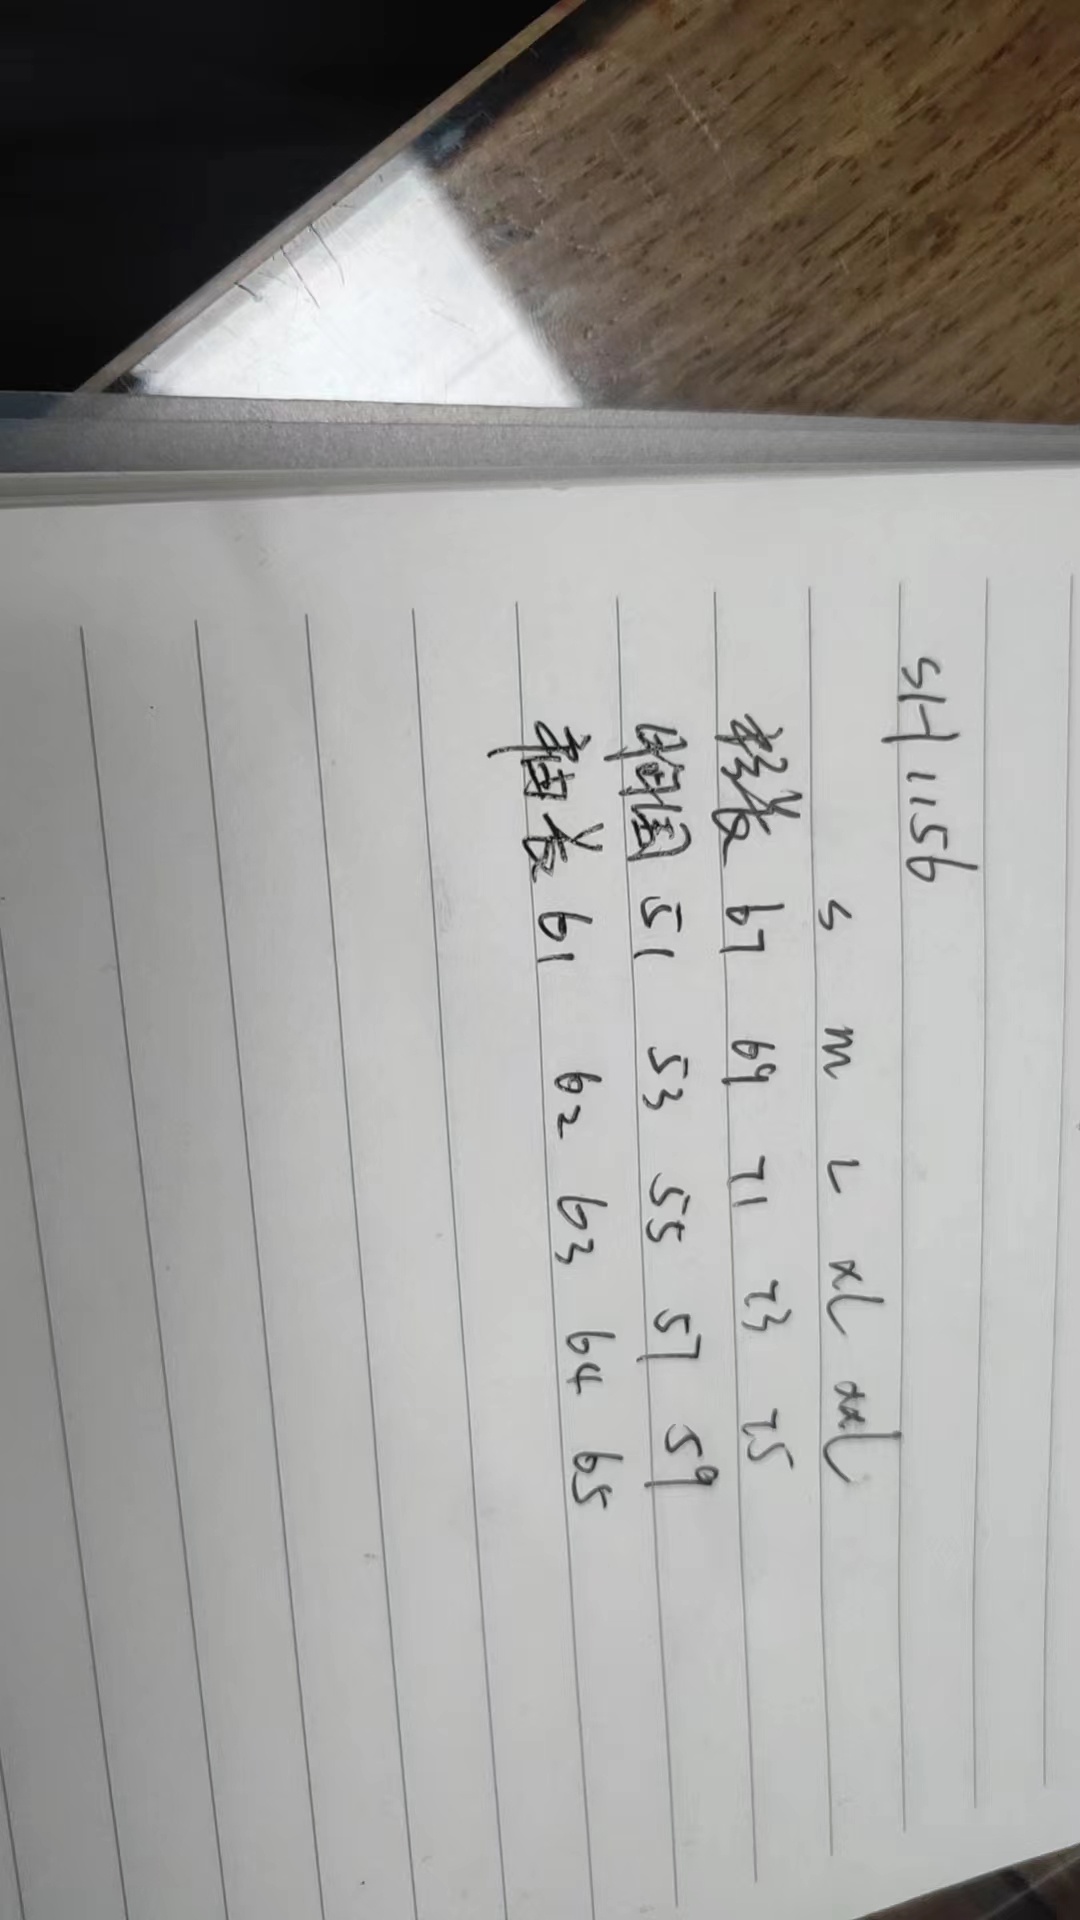 SH1156
S m L xL xxL
衫长 67 69 71 73 75
胸围 51 53 55 57 59
袖长 61 62 63 64 65